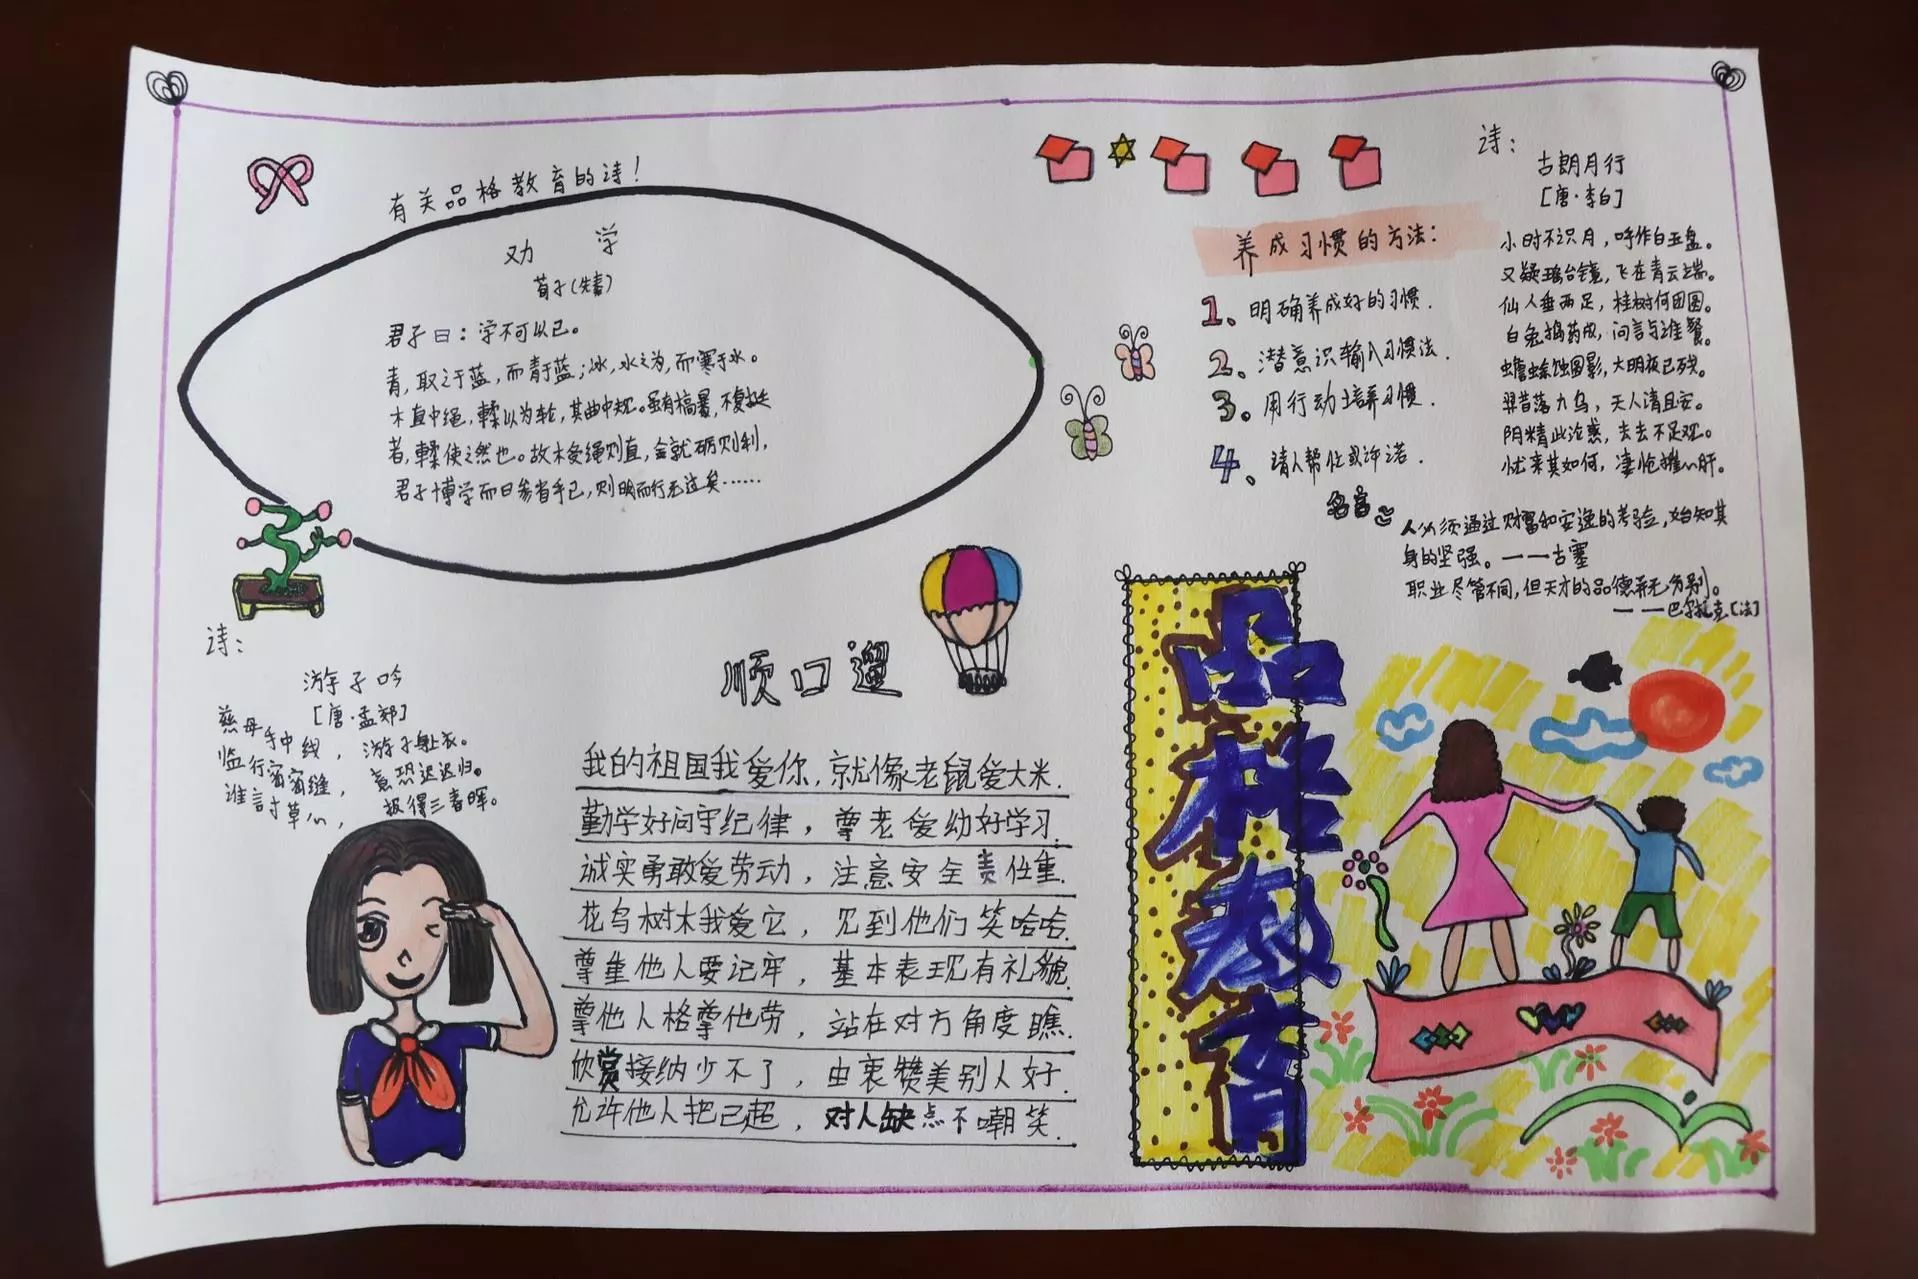 有关品格教育的诗!
劝 学
荀子(先秦)
君子曰:学不可以已。
青,取之于蓝,而青于蓝;冰,水之为,而寒于水。
木直中绳,輮以为轮,其曲中规。虽有槁暴,不复挺
者,輮使之然也。故木受绳则直,金就砺则利,
君子博学而日参省乎己,则明而行无过矣……
诗:
游子吟
[唐·孟郊]
慈母手中线,游子身上衣。
临行密密缝,意恐迟迟归。
谁言寸草心,报得三春晖。
顺口遛
我的祖国我爱你,就像老鼠爱大米.
勤学好问守纪律,尊老爱幼好学习.
诚实勇敢爱劳动,注意安全责任重.
花鸟树木我爱它,见到他们笑哈哈.
尊重他人要记牢,基本表现有礼貌.
尊他人格尊他劳,站在对方角度瞧.
欣赏接纳少不了,由衷赞美别人好.
允许他人把己超,对人缺点不嘲笑.
养成习惯的方法:
1、明确养成好的习惯.
2、潜意识输入习惯法.
3。用行动培养习惯.
4、请人帮忙或许诺.
诗:
古朗月行
[唐·李白]
小时不识月,呼作白玉盘。
又疑瑶台镜,飞在青云端。
仙人垂两足,桂树何团圆。
白兔捣药成,问言与谁餐。
蟾蜍蚀圆影,大明夜已残。
羿昔落九乌,天人清且安。
阴精此沦惑,去去不足观。
忧来其如何,凄怆摧心肝。
名言:
人必须通过财富和安逸的考验,始知其
身的坚强。——古塞
职业尽管不同,但天才的品德并无分别。
——巴尔扎克[法]
品格教育